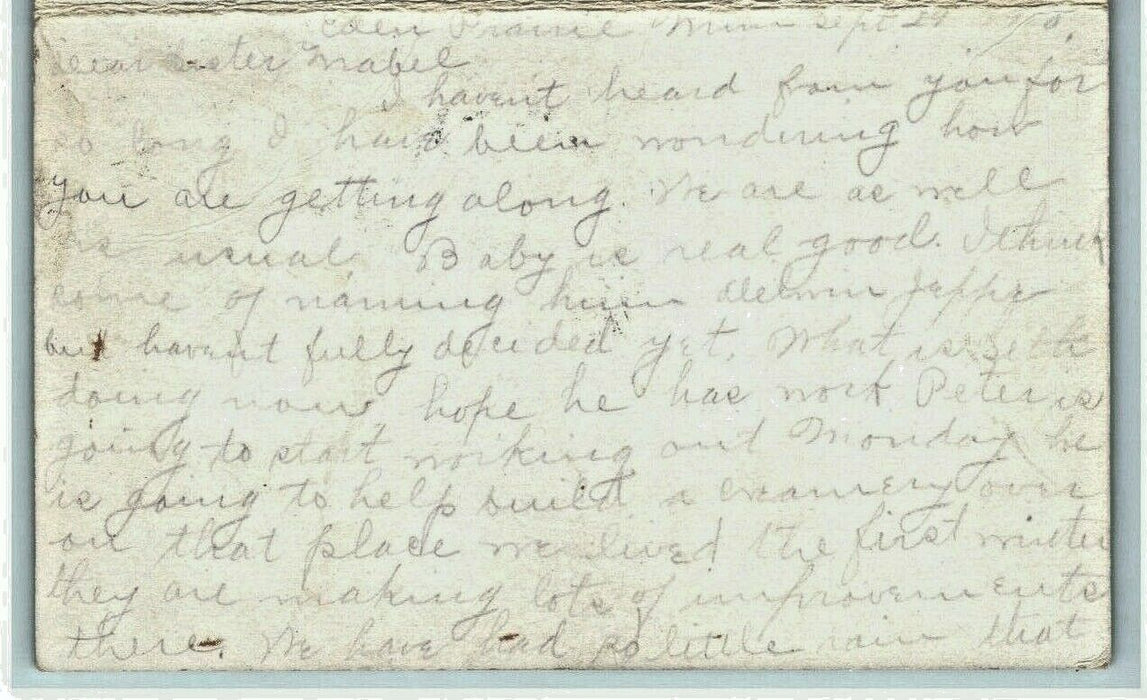 Eden Prairie Minn Sept 29
Dear Sister Mabel
I havent heard from you for
so long I have been wondering how
you are getting along. We are as well
as usual. Baby is real good. I think
some of naming him
but havent fully decided yet. What is Seth
doing now hope he has work Peter is
going to start working out Monday he
is going to help build a creamery over
on that place we lived the first winter
they are making lots of improvements
there. We have had so little rain that